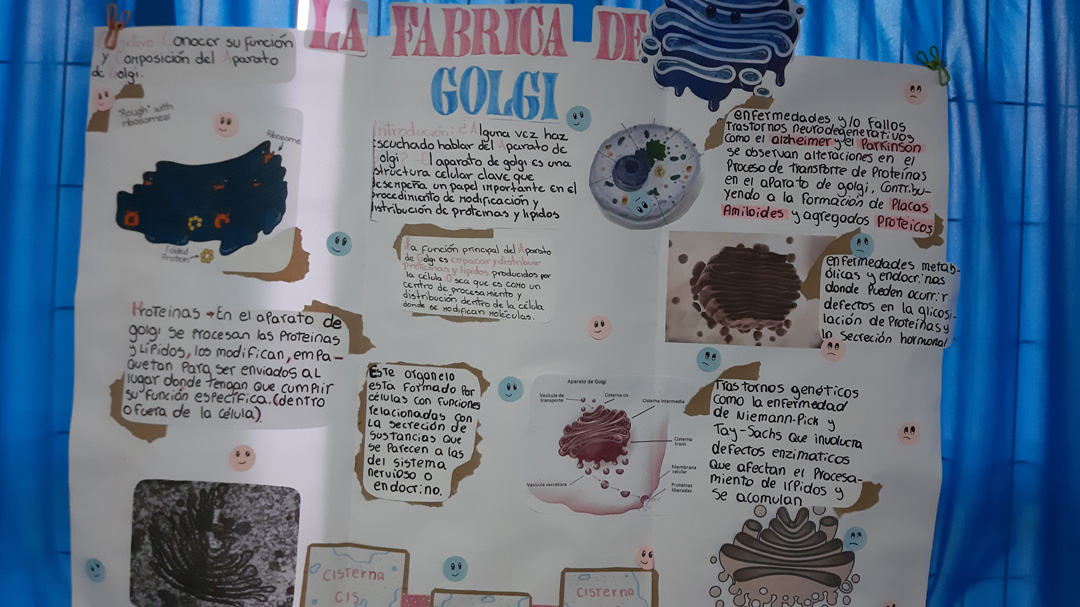 LA FABRICA DE
GOLGI
Objetivo: Conocer su función
y Composición del Aparato
de Golgi.
"Rough" with
ribosomes!
Ribosome
Folded
Protein
Proteinas → En el aparato de
golgi se procesan las Proteinas
y Lipidos, los modifican, empa-
quetan Para ser enviados al
lugar donde tengan que cumplir
su función específica. (dentro
o fuera de la célula)
Introducción: ¿Alguna vez haz
escuchado hablar del Aparato de
Golgi? El aparato de golgi es una
structura celular clave que
desempeña un papel importante en el
procedimiento de modificación y
distribución de proteínas y lípidos
La función principal del Aparato
de Golgi es empacar y distribuir
proteínas y lípidos producidos por
la célula O sea que es como un
centro de procesamiento y
distribución dentro de la célula
donde se modifican moléculas.
Este organelo
esta formado por
células con funciones
relacionadas con
la secreción de
sustancias que
se parecen a las
del sistema
nervioso o
endocrino.
Aparato de Golgi
Vesícula de
transporte
Cisterna cis
Cisterna intermedia
Cisterna
trans
Membrana
celular
Vesícula secretora
Proteínas
liberadas
enfermedades y/o Fallos
Trastornos neurodegenerativos
como el alzheimer y el Parkinson
se observan alteraciones en el
Proceso de Transporte de Proteinas
en el aparato de golgi, contribu-
yendo a la formación de Placas
Amiloides y agregados Proteicos
enfermedades metab-
ólicas y endocrinas
donde Pueden ocurrir
defectos en la glicosi-
lación de Proteinas y
la secreción hormonal
Trastornos genéticos
como la enfermedad
de Niemann-Pick y
Tay-Sachs que involucra
defectos enzimaticos
que afectan el Procesa-
miento de lípidos y
se acumulan
CISTERNA
CIS
CISTERNA